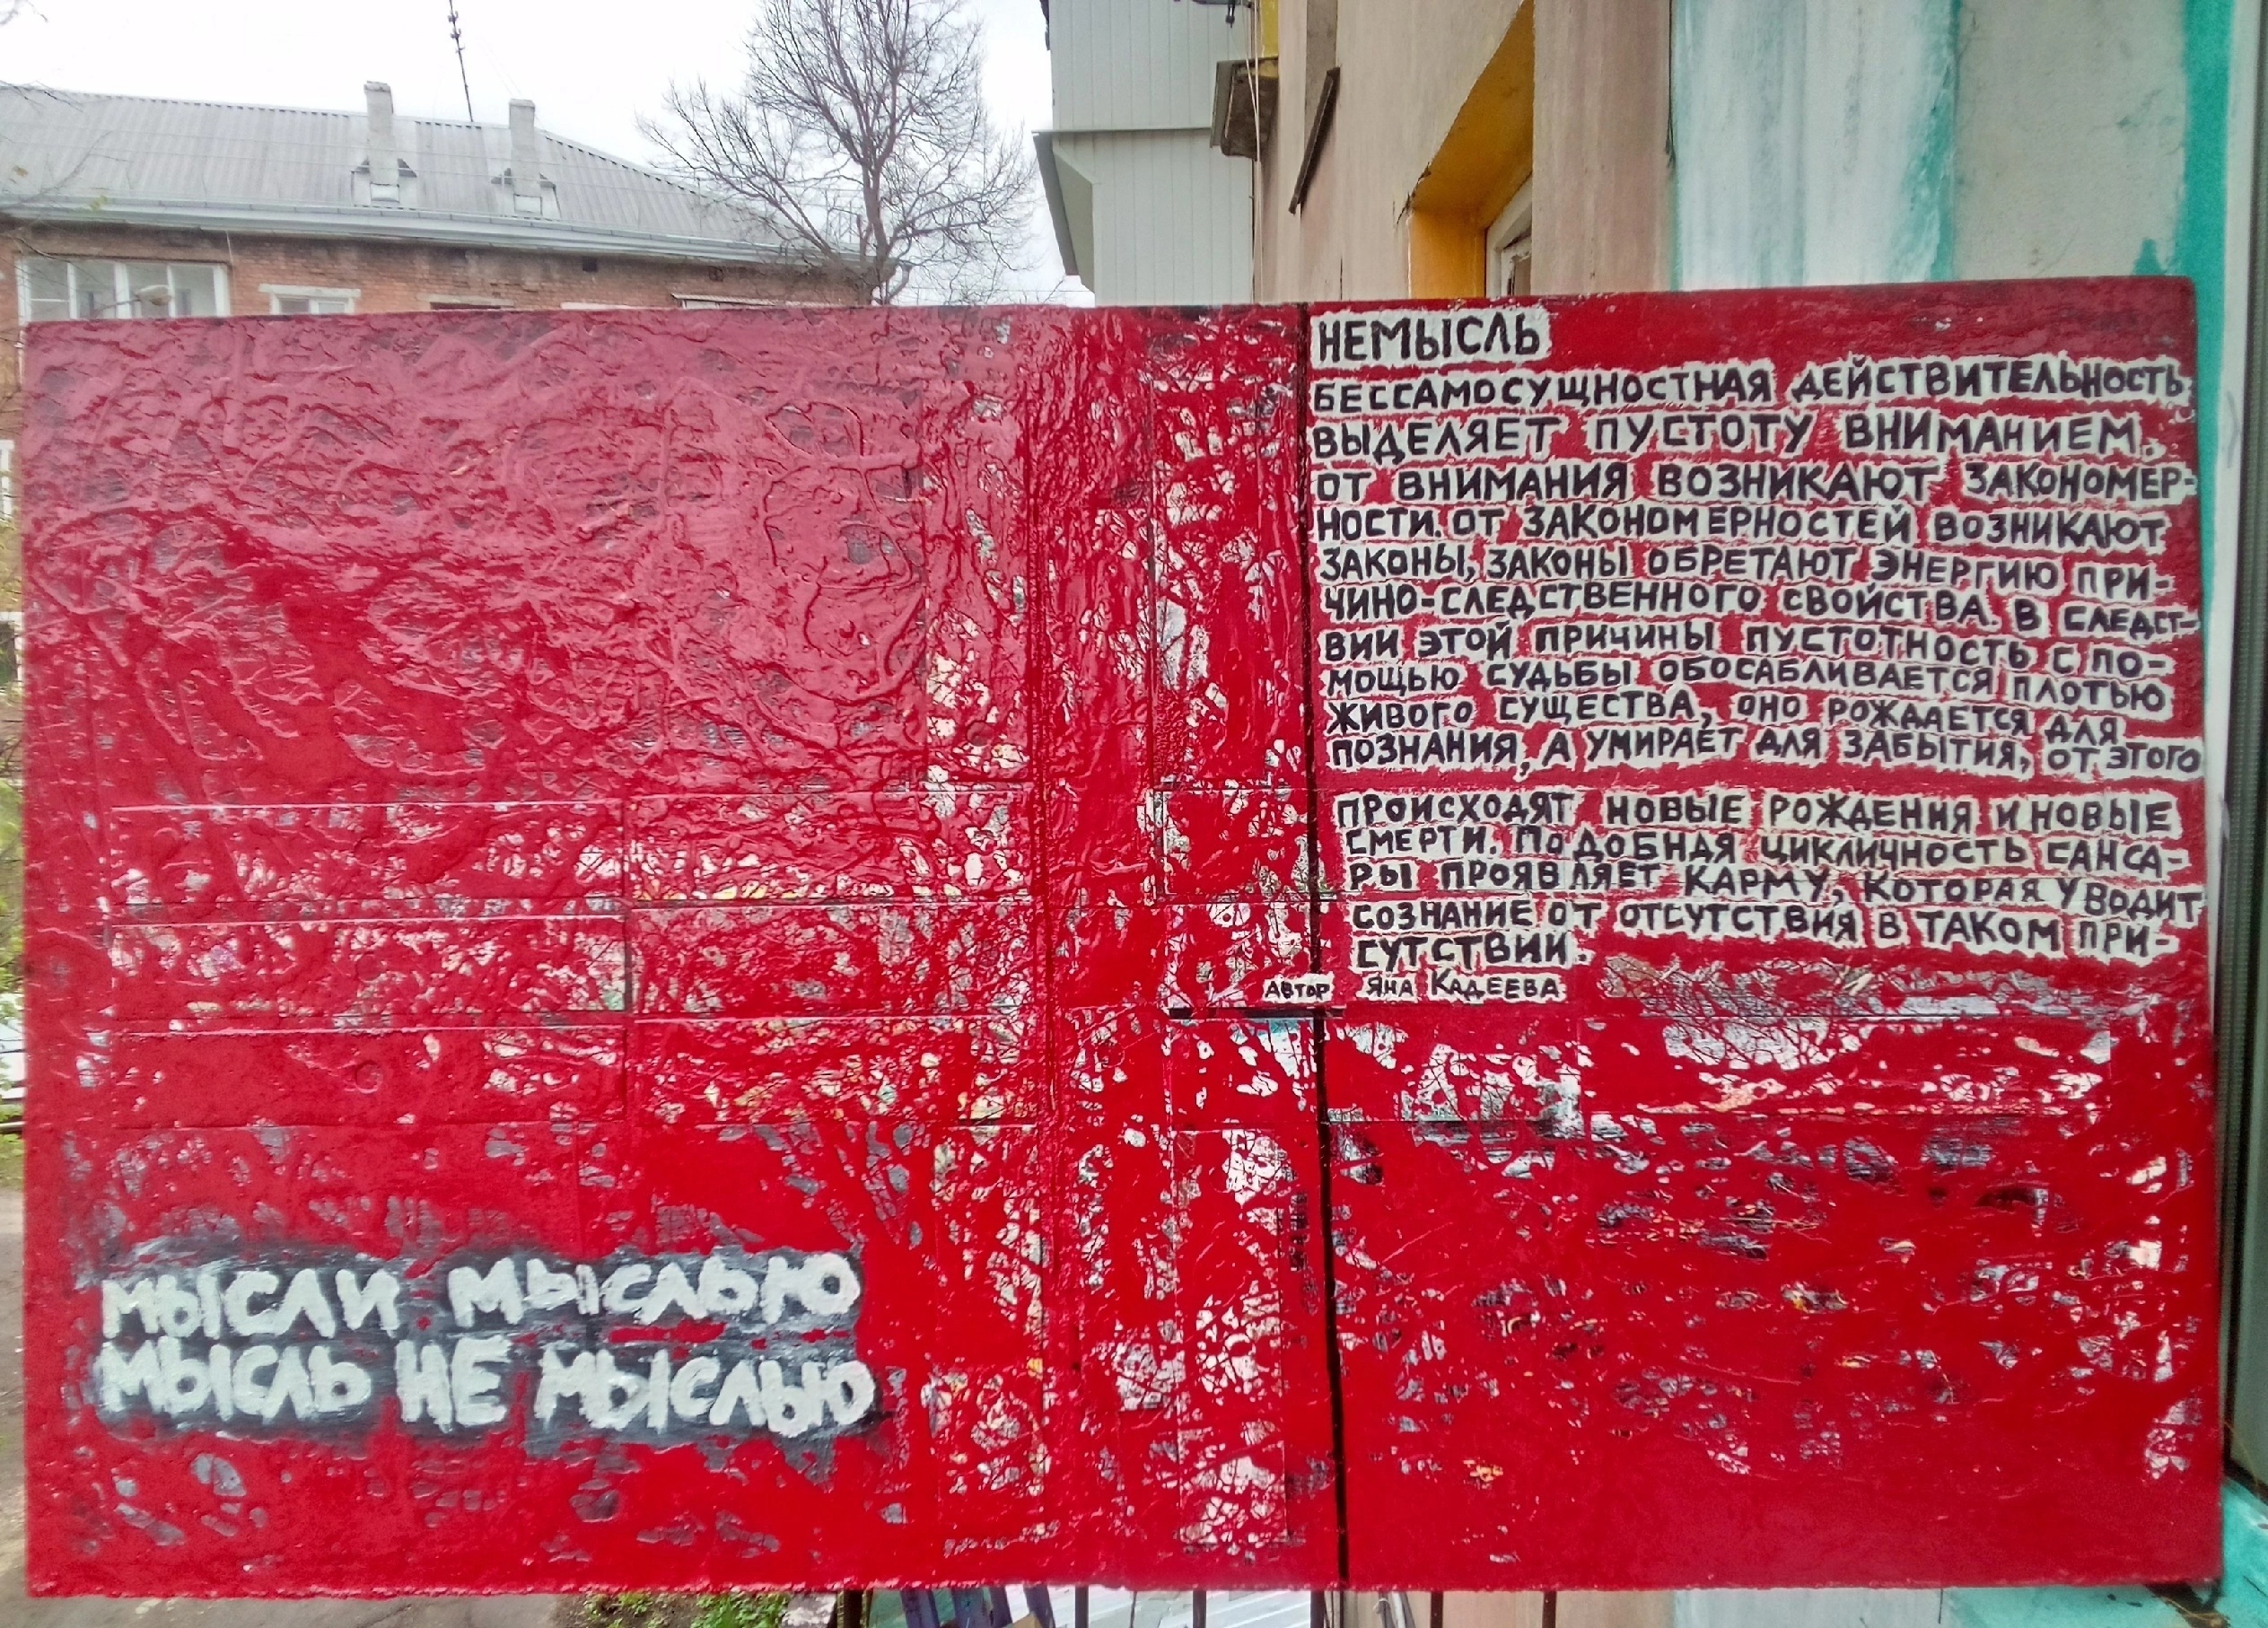 НЕМЫСЛЬ
БЕССАМОСУЩНОСТНАЯ ДЕЙСТВИТЕЛЬНОСТЬ
ВЫДЕЛЯЕТ ПУСТОТУ ВНИМАНИЕМ.
ОТ ВНИМАНИЯ ВОЗНИКАЮТ ЗАКОНОМЕР-
НОСТИ. ОТ ЗАКОНОМЕРНОСТЕЙ ВОЗНИКАЮТ
ЗАКОНЫ, ЗАКОНЫ ОБРЕТАЮТ ЭНЕРГИЮ ПРИ-
ЧИНО-СЛЕДСТВЕННОГО СВОЙСТВА. В СЛЕДСТ-
ВИИ ЭТОЙ ПРИЧИНЫ ПУСТОТНОСТЬ С ПО-
МОЩЬЮ СУДЬБЫ ОБОСАБЛИВАЕТСЯ ПЛОТЬЮ
ЖИВОГО СУЩЕСТВА, ОНО РОЖДАЕТСЯ ДЛЯ
ПОЗНАНИЯ, А УМИРАЕТ ДЛЯ ЗАБЫТИЯ, ОТ ЭТОГО
ПРОИСХОДЯТ НОВЫЕ РОЖДЕНИЯ И НОВЫЕ
СМЕРТИ. ПОДОБНАЯ ЦИКЛИЧНОСТЬ САНСА-
РЫ ПРОЯВЛЯЕТ КАРМУ, КОТОРАЯ УВОДИТ
СОЗНАНИЕ ОТ ОТСУТСТВИЯ В ТАКОМ ПРИ-
СУТСТВИИ.
АВТОР ЯНА КАДЕЕВА
МЫСЛИ МЫСЛЬЮ
МЫСЛЬ НЕ МЫСЛЬЮ